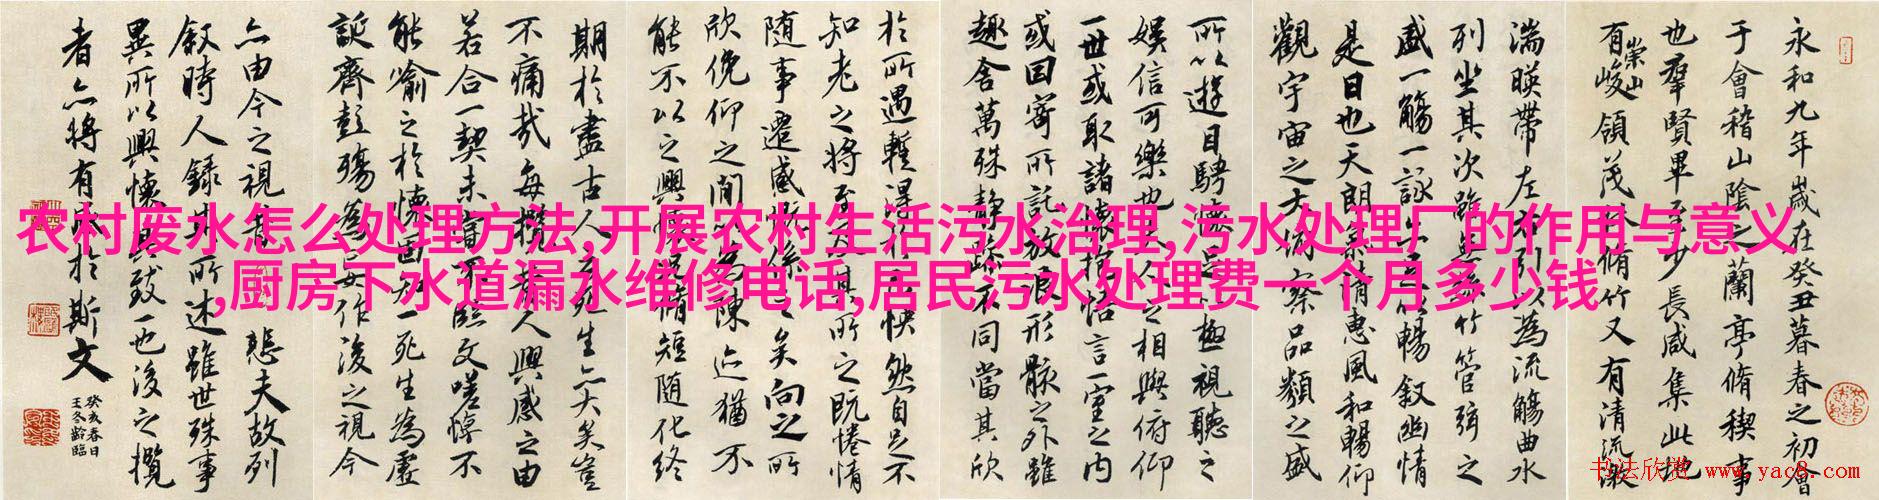 农村废水怎么处理方法,开展农村生活污水治理,污水处理厂的作用与意义
,厨房下水道漏水维修电话,居民污水处理费一个月多少钱
永和九年歲在癸丑暮春之初會
于會稽山陰之蘭亭脩禊事
也羣賢畢至少長咸集此地
有崇山峻領茂林脩竹又有清流激
湍暎帶左右引以為流觴曲水
列坐其次雖無絲竹管弦之
盛一觴一詠亦足以暢敘幽情
是日也天朗氣清惠風和暢仰
觀宇宙之大俯察品類之盛
所以遊目騁懷足以極視聽之
娛信可樂也夫人之相與俯仰
一世或取諸懷抱悟言一室之內
或因寄所託放浪形骸之外雖
趣舍萬殊靜躁不同當其欣
於所遇暫得於己怏然自足不
知老之將至及其所之既惓情
随事遷感慨係之矣向之所
欣俛仰之間以為陳迹猶不
能不以之興懷況脩短随化終
期於盡古人云死生亦大矣豈
不痛哉每攬昔人興感之由
若合一契未嘗不臨文嗟悼不
能喻之於懷固知一死生為虛
誕齊彭殤為妄作後之視今
亦由今之視昔悲夫故列
敘時人錄其所述雖世殊事
異所以興懷其致一也後之攬
者亦將有感於斯文
癸亥春日
王冬齡臨
书法欣赏 www.yac8.com